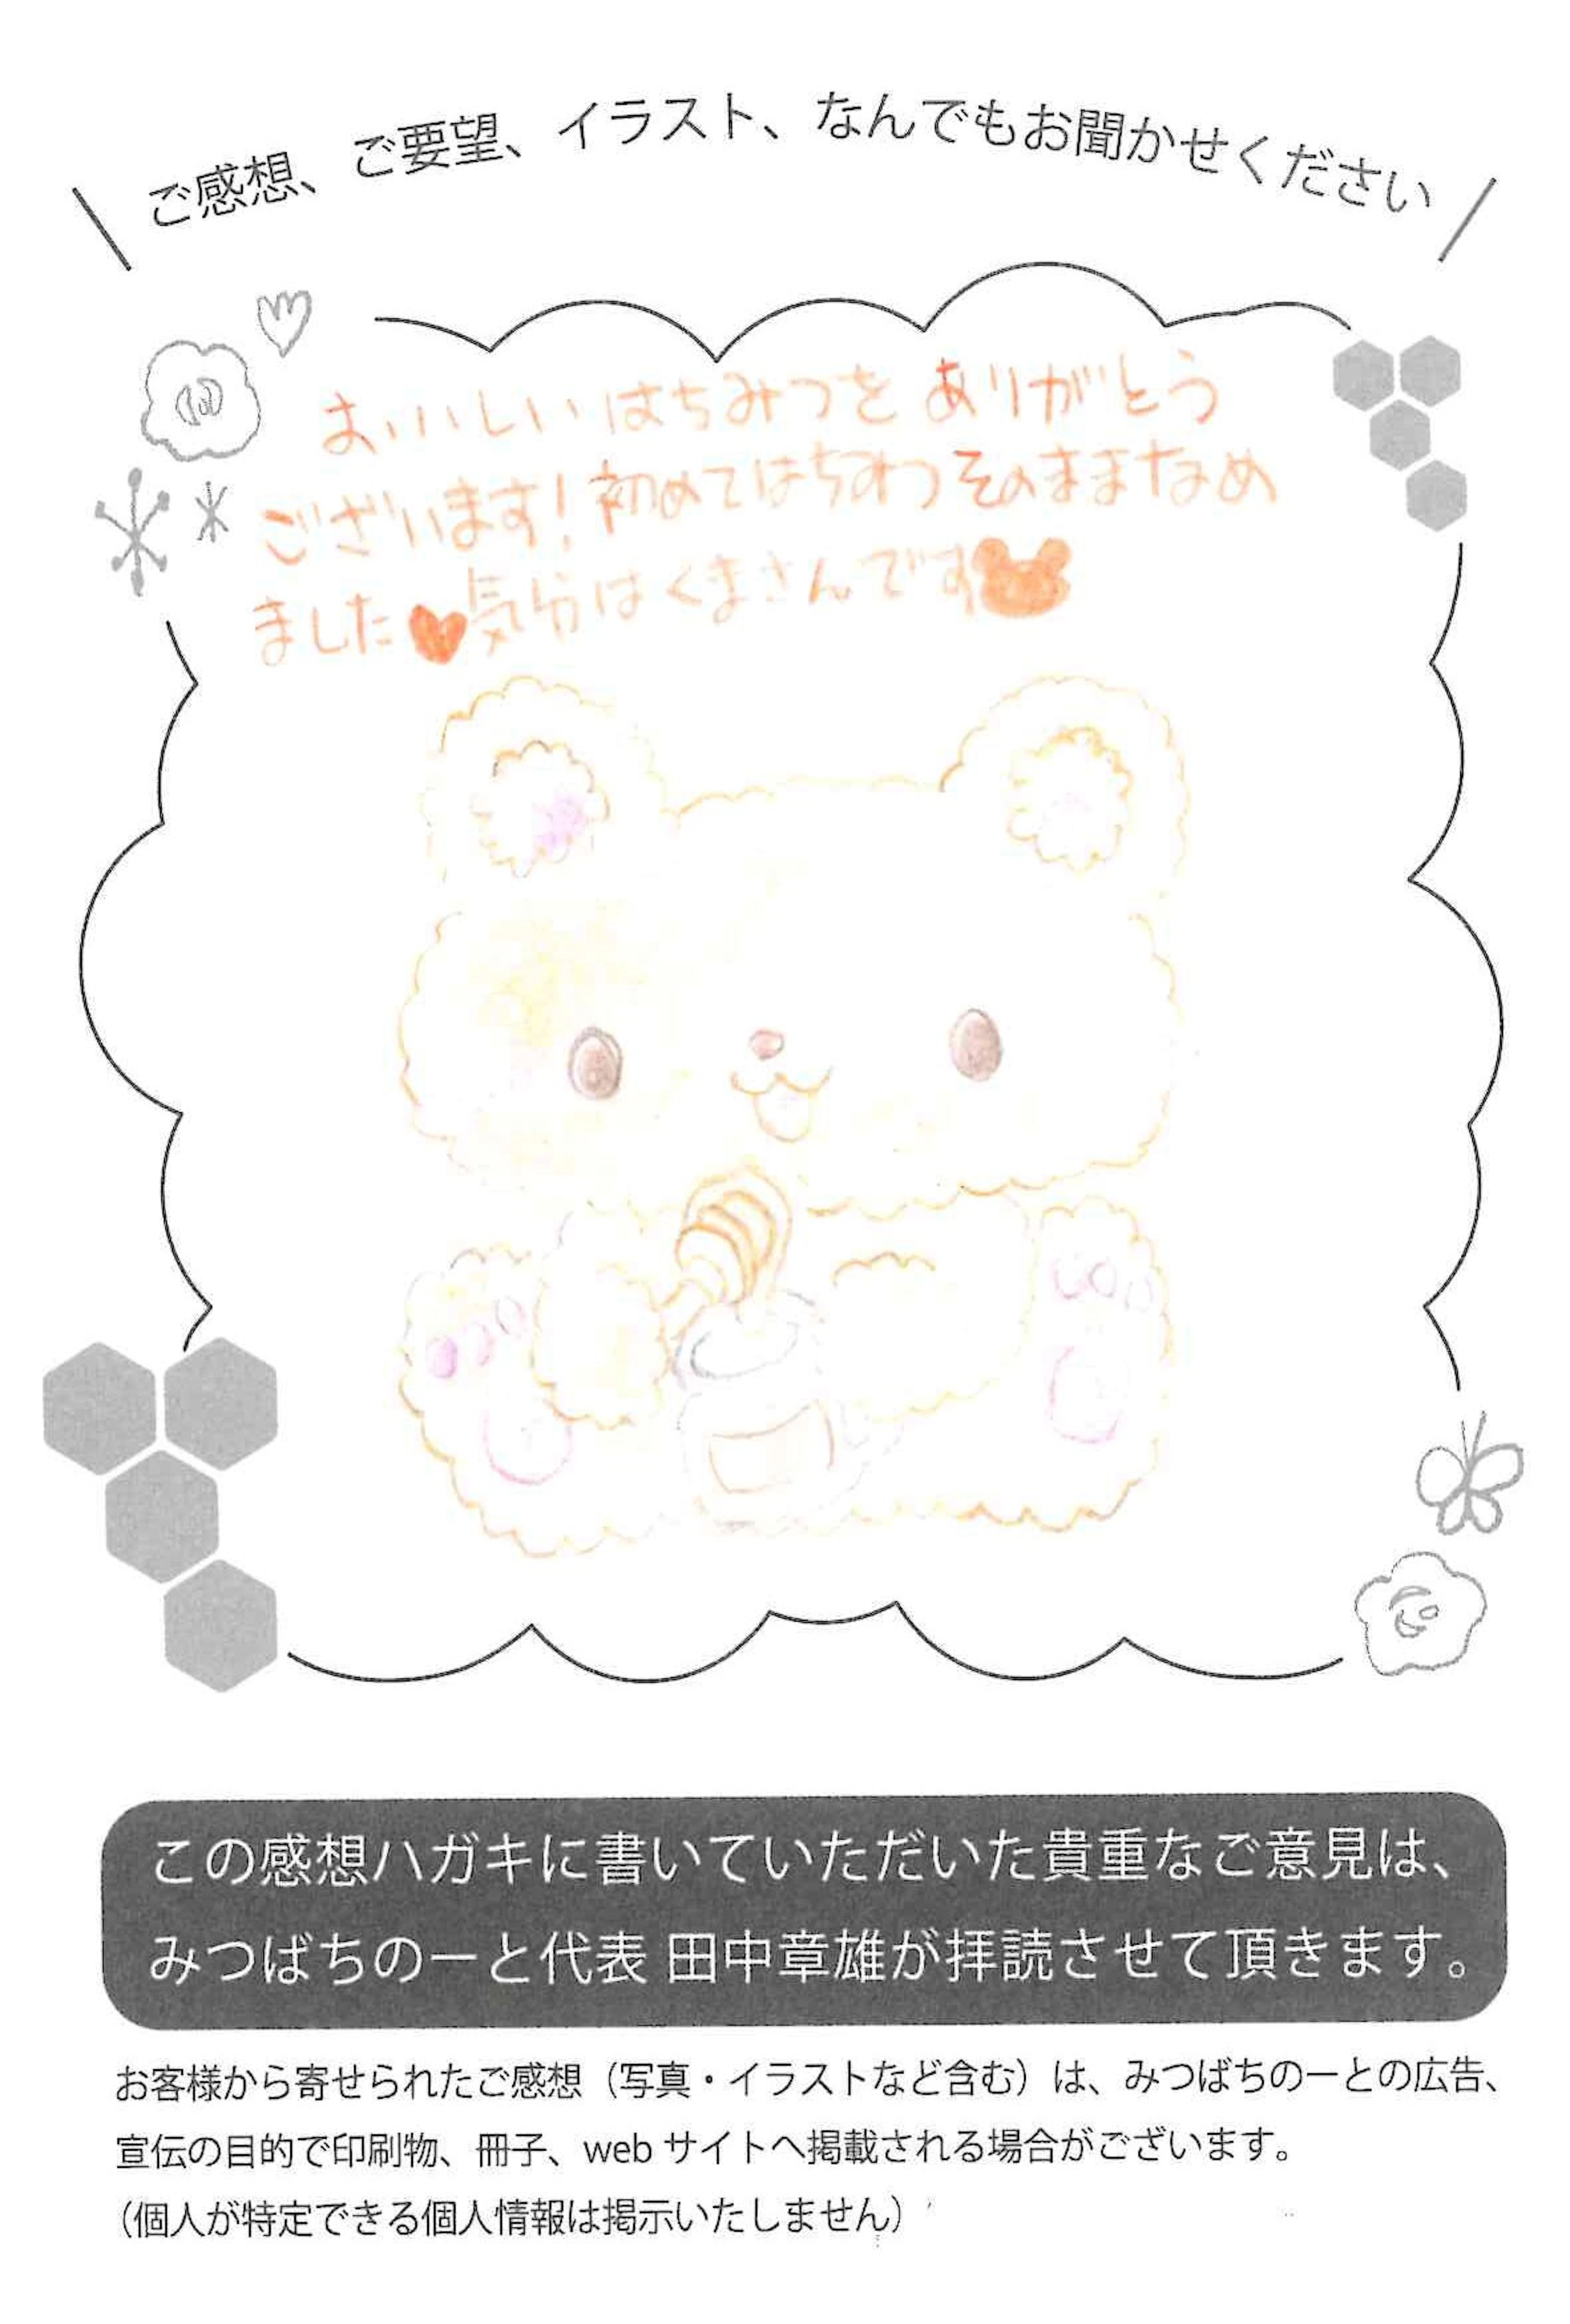 ご感想、ご要望、イラスト、なんでもお聞かせください
おいしいはちみつをありがとう
ございます!初めてはちみつそのままなめ
ました♥気分はくまさんです
この感想ハガキに書いていただいた貴重なご意見は、
みつばちのーと代表 田中章雄が拝読させて頂きます。
お客様から寄せられたご感想（写真・イラストなど含む）は、みつばちのーとの広告、
宣伝の目的で印刷物、冊子、web サイトへ掲載される場合がございます。
（個人が特定できる個人情報は掲示いたしません）